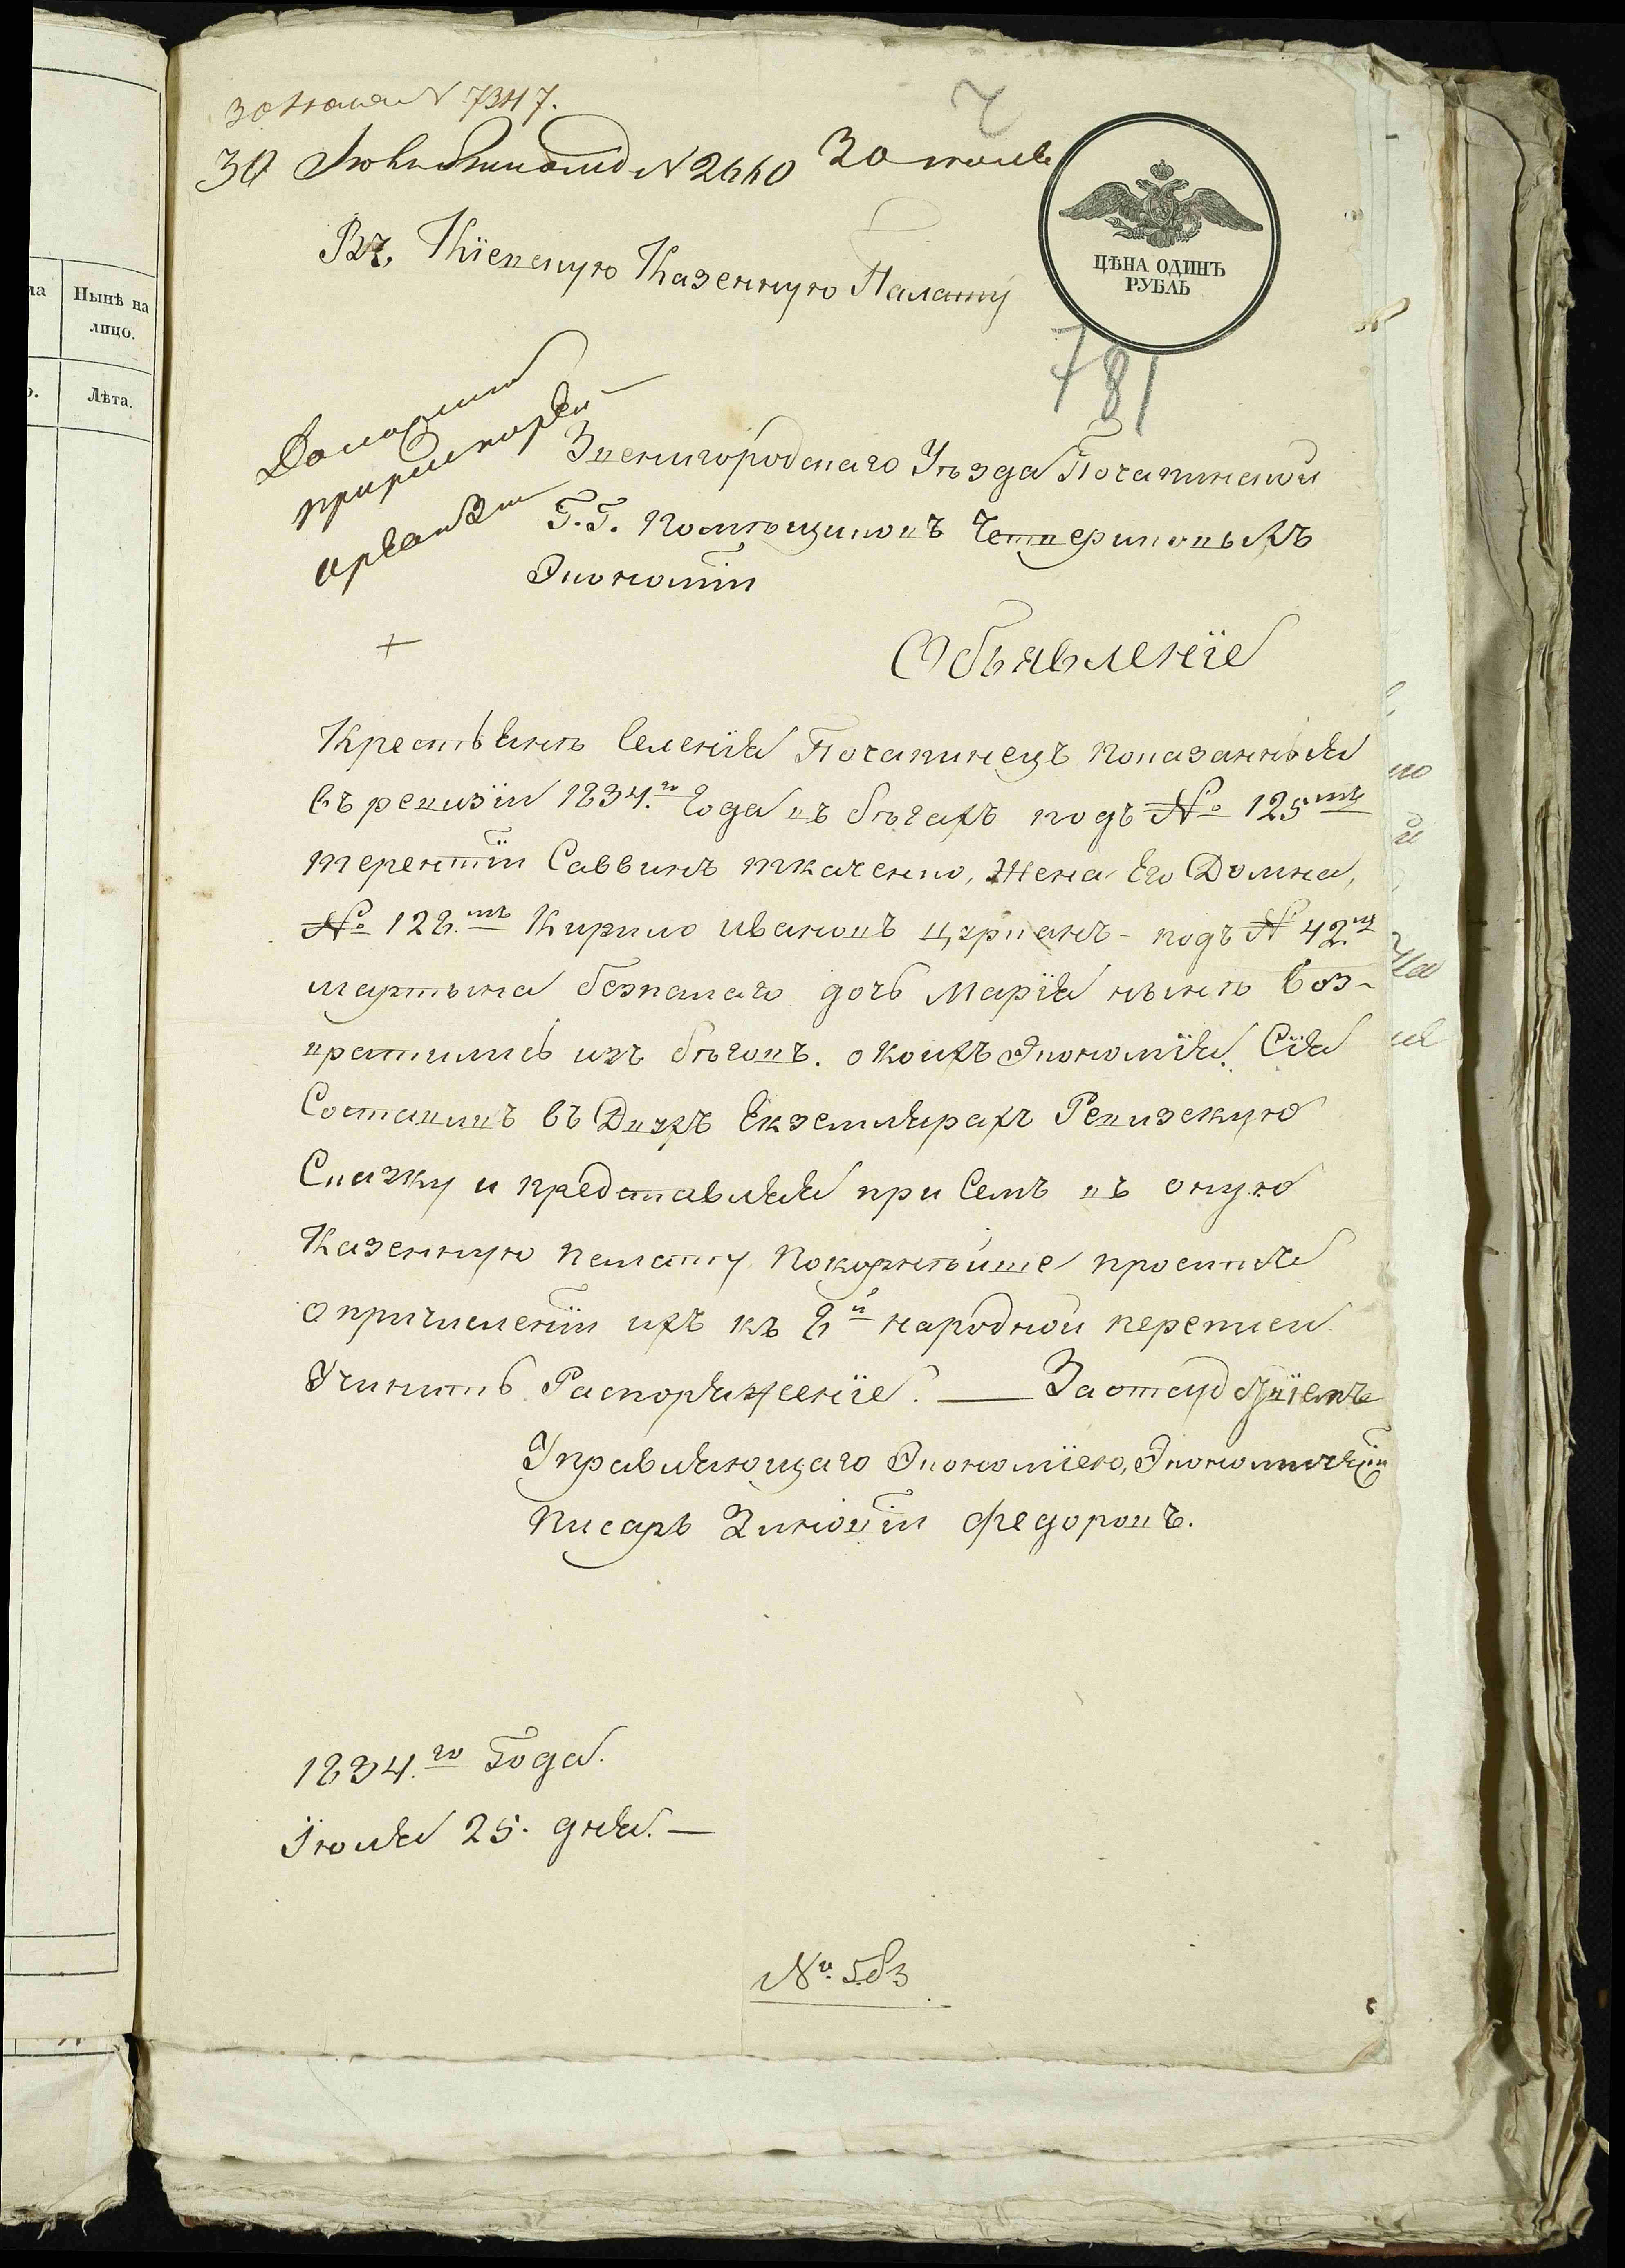 30 Июля N 7347.
30 Июля N 2660 30 июля
Въ Кіевскую Казенную Палату
ЦѢНА ОДИНЪ
РУБЛЬ
781
Звенигородскаго Уѣзда Почапинской
Г.Г. Помѣщиковъ Четвериковыхъ
Экономіи
Объявленіе
Крестьяне Селенія Почапинецъ показанныя
въ ревизіи 1834.го Года въ бѣгахъ подъ № 125мъ
терентій Саввинъ ткаченко, Жена Его Домна,
№ 128.мъ Кирило ивановъ подъ № 42мъ
мартына безпалаго дочь Марія нынѣ Воз-
вратились изъ бѣговъ. о коихъ Экономія Сія
Составивъ въ Двухъ Екземплярахъ Ревизскую
Сказку и представляя при Семъ въ оную
Казенную палату Покорнѣйше проситъ
о причисленіи ихъ къ 8й народной переписи
Учинить Распоряженіе. — За отсудствіемъ
Управляющаго Экономіею, Экономическій
Писарь Зиновій Федоровъ.
1834.го Года.
Іюля 25. дня. —
№ 583
Нынѣ на
лицо.
Лѣта.